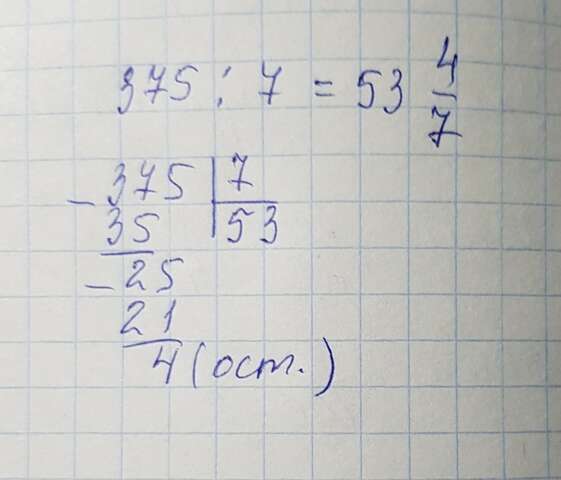 375 : 7 = 53 4/7
- 375 | 7
35 | 53
- 25
21
4 (ост.)